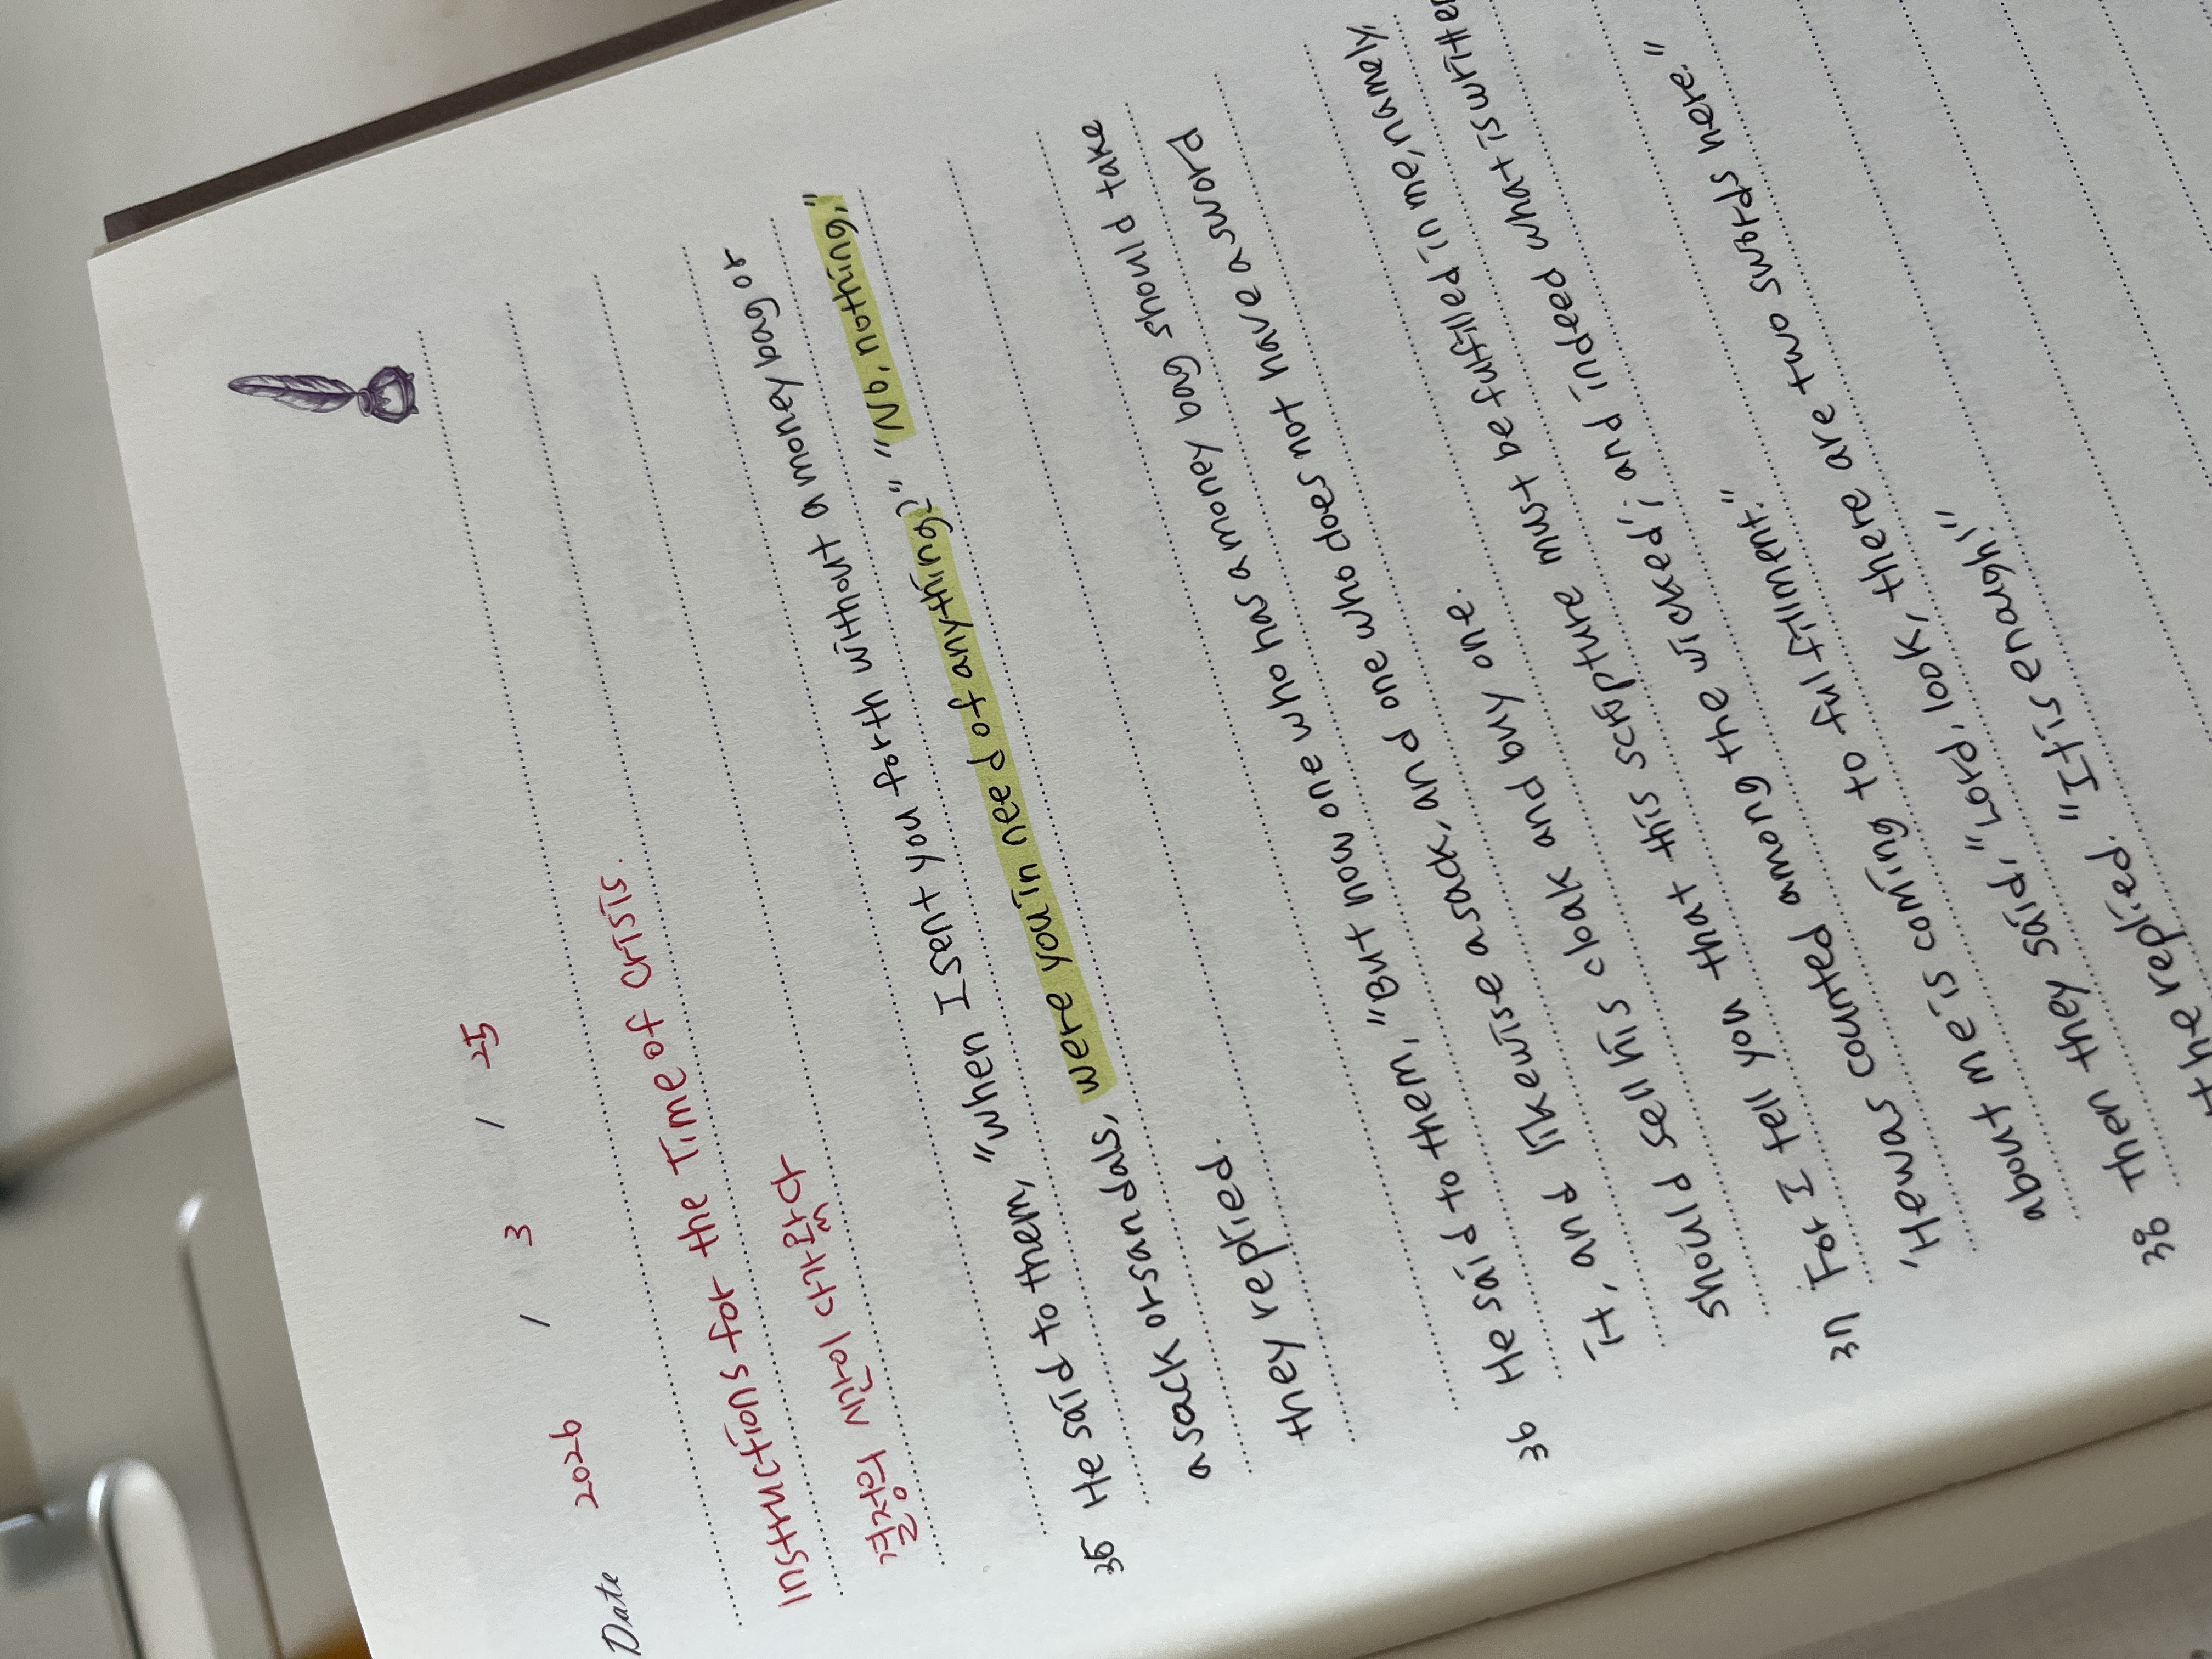 Date 2026 / 3 / 25
Instructions for the Time of Crisis.
결정의 시간이 다가왔다
35 He said to them, "when I sent you forth without a money bag or
a sack or sandals, were you in need of anything?" "No, nothing,"
they replied.
36 He said to them, "But now one who has a money bag should take
it, and likewise a sack, and one who does not have a sword
should sell his cloak and buy one.
37 For I tell you that this scripture must be fulfilled in me, namely,
'He was counted among the wicked'; and indeed what is written
about me is coming to fulfillment."
38 Then they said, "Lord, look, there are two swords here."
he replied. "It is enough!"